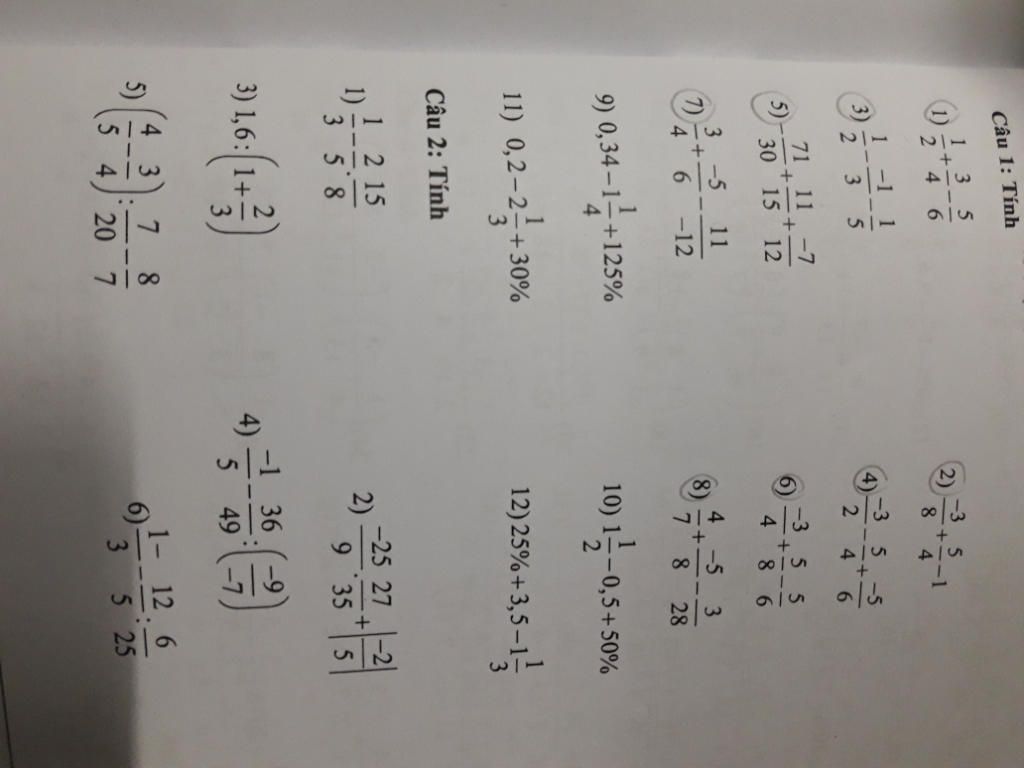 Câu 1: Tính
1) 1/2 + 3/4 - 5/6
2) -3/8 + 5/4 - 1
3) 1/2 - -1/3 - 1/5
4) -3/2 - 5/4 + -5/6
5) - 71/30 + 11/15 + -7/12
6) -3/4 + 5/8 - 5/6
7) 3/4 + -5/6 - 11/-12
8) 4/7 + -5/8 - 3/28
9) 0,34 - 1 1/4 + 125%
10) 1 1/2 - 0,5 + 50%
11) 0,2 - 2 1/3 + 30%
12) 25% + 3,5 - 1 1/3
Câu 2: Tính
1) 1/3 - 2/5 . 15/8
2) -25/9 . 27/35 + |-2/5|
3) 1,6 : (1 + 2/3)
4) -1/5 - 36/49 : (-9/-7)
5) (4/5 - 3/4) : 7/20 - 8/7
6) 1-/3 - 12/5 : 6/25